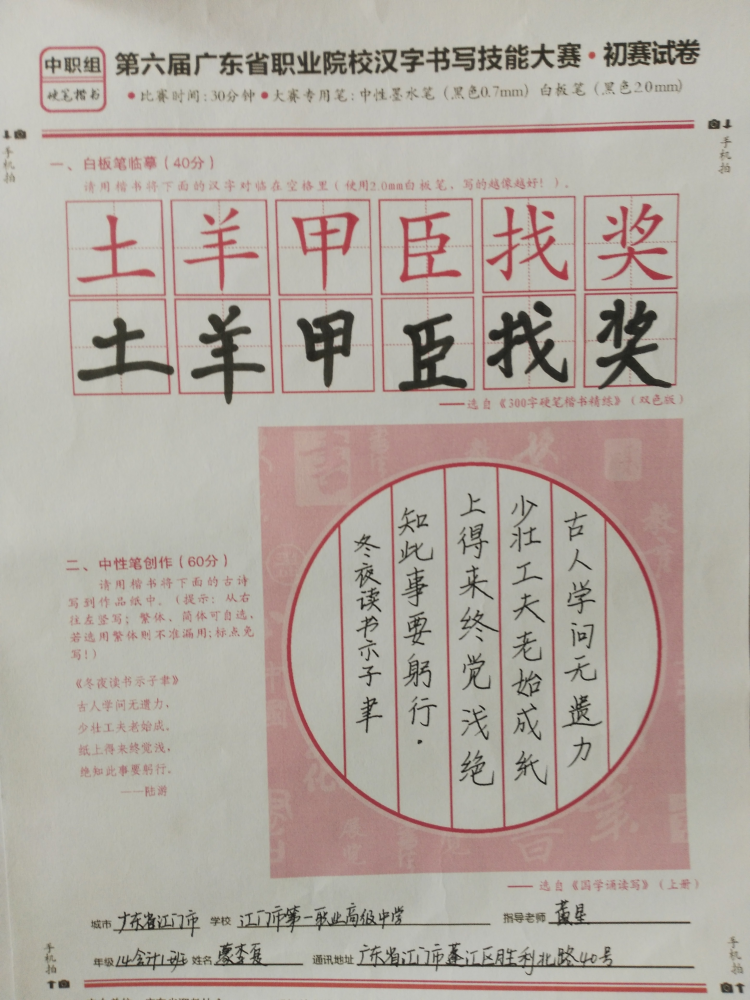 中职组
硬笔楷书
第六届广东省职业院校汉字书写技能大赛·初赛试卷
●比赛时间:30分钟 ●大赛专用笔:中性墨水笔(黑色0.7mm) 白板笔(黑色2.0mm)
手机拍
手机拍
一、白板笔临摹(40分)
请用楷书将下面的汉字对临在空格里(使用2.0mm白板笔,写的越像越好!)。
土羊甲臣找奖
土羊甲臣找奖
——选自《300字硬笔楷书精练》(双色版)
二、中性笔创作(60分)
请用楷书将下面的古诗
写到作品纸中。(提示:从右
往左竖写;繁体、简体可自选,
若选用繁体则不准漏用;标点免
写!)
《冬夜读书示子聿》
古人学问无遗力,
少壮工夫老始成,
纸上得来终觉浅,
绝知此事要躬行。
——陆游
古人学问无遗力
少壮工夫老始成纸
上得来终觉浅绝
知此事要躬行.
冬夜读书示子聿
——选自《国学诵读写》(上册)
城市 广东省江门市 学校 江门市第一职业高级中学 指导老师 黄星
年级 14会计1班 姓名 通讯地址 广东省江门市蓬江区胜利北路40号
手机拍
手机拍